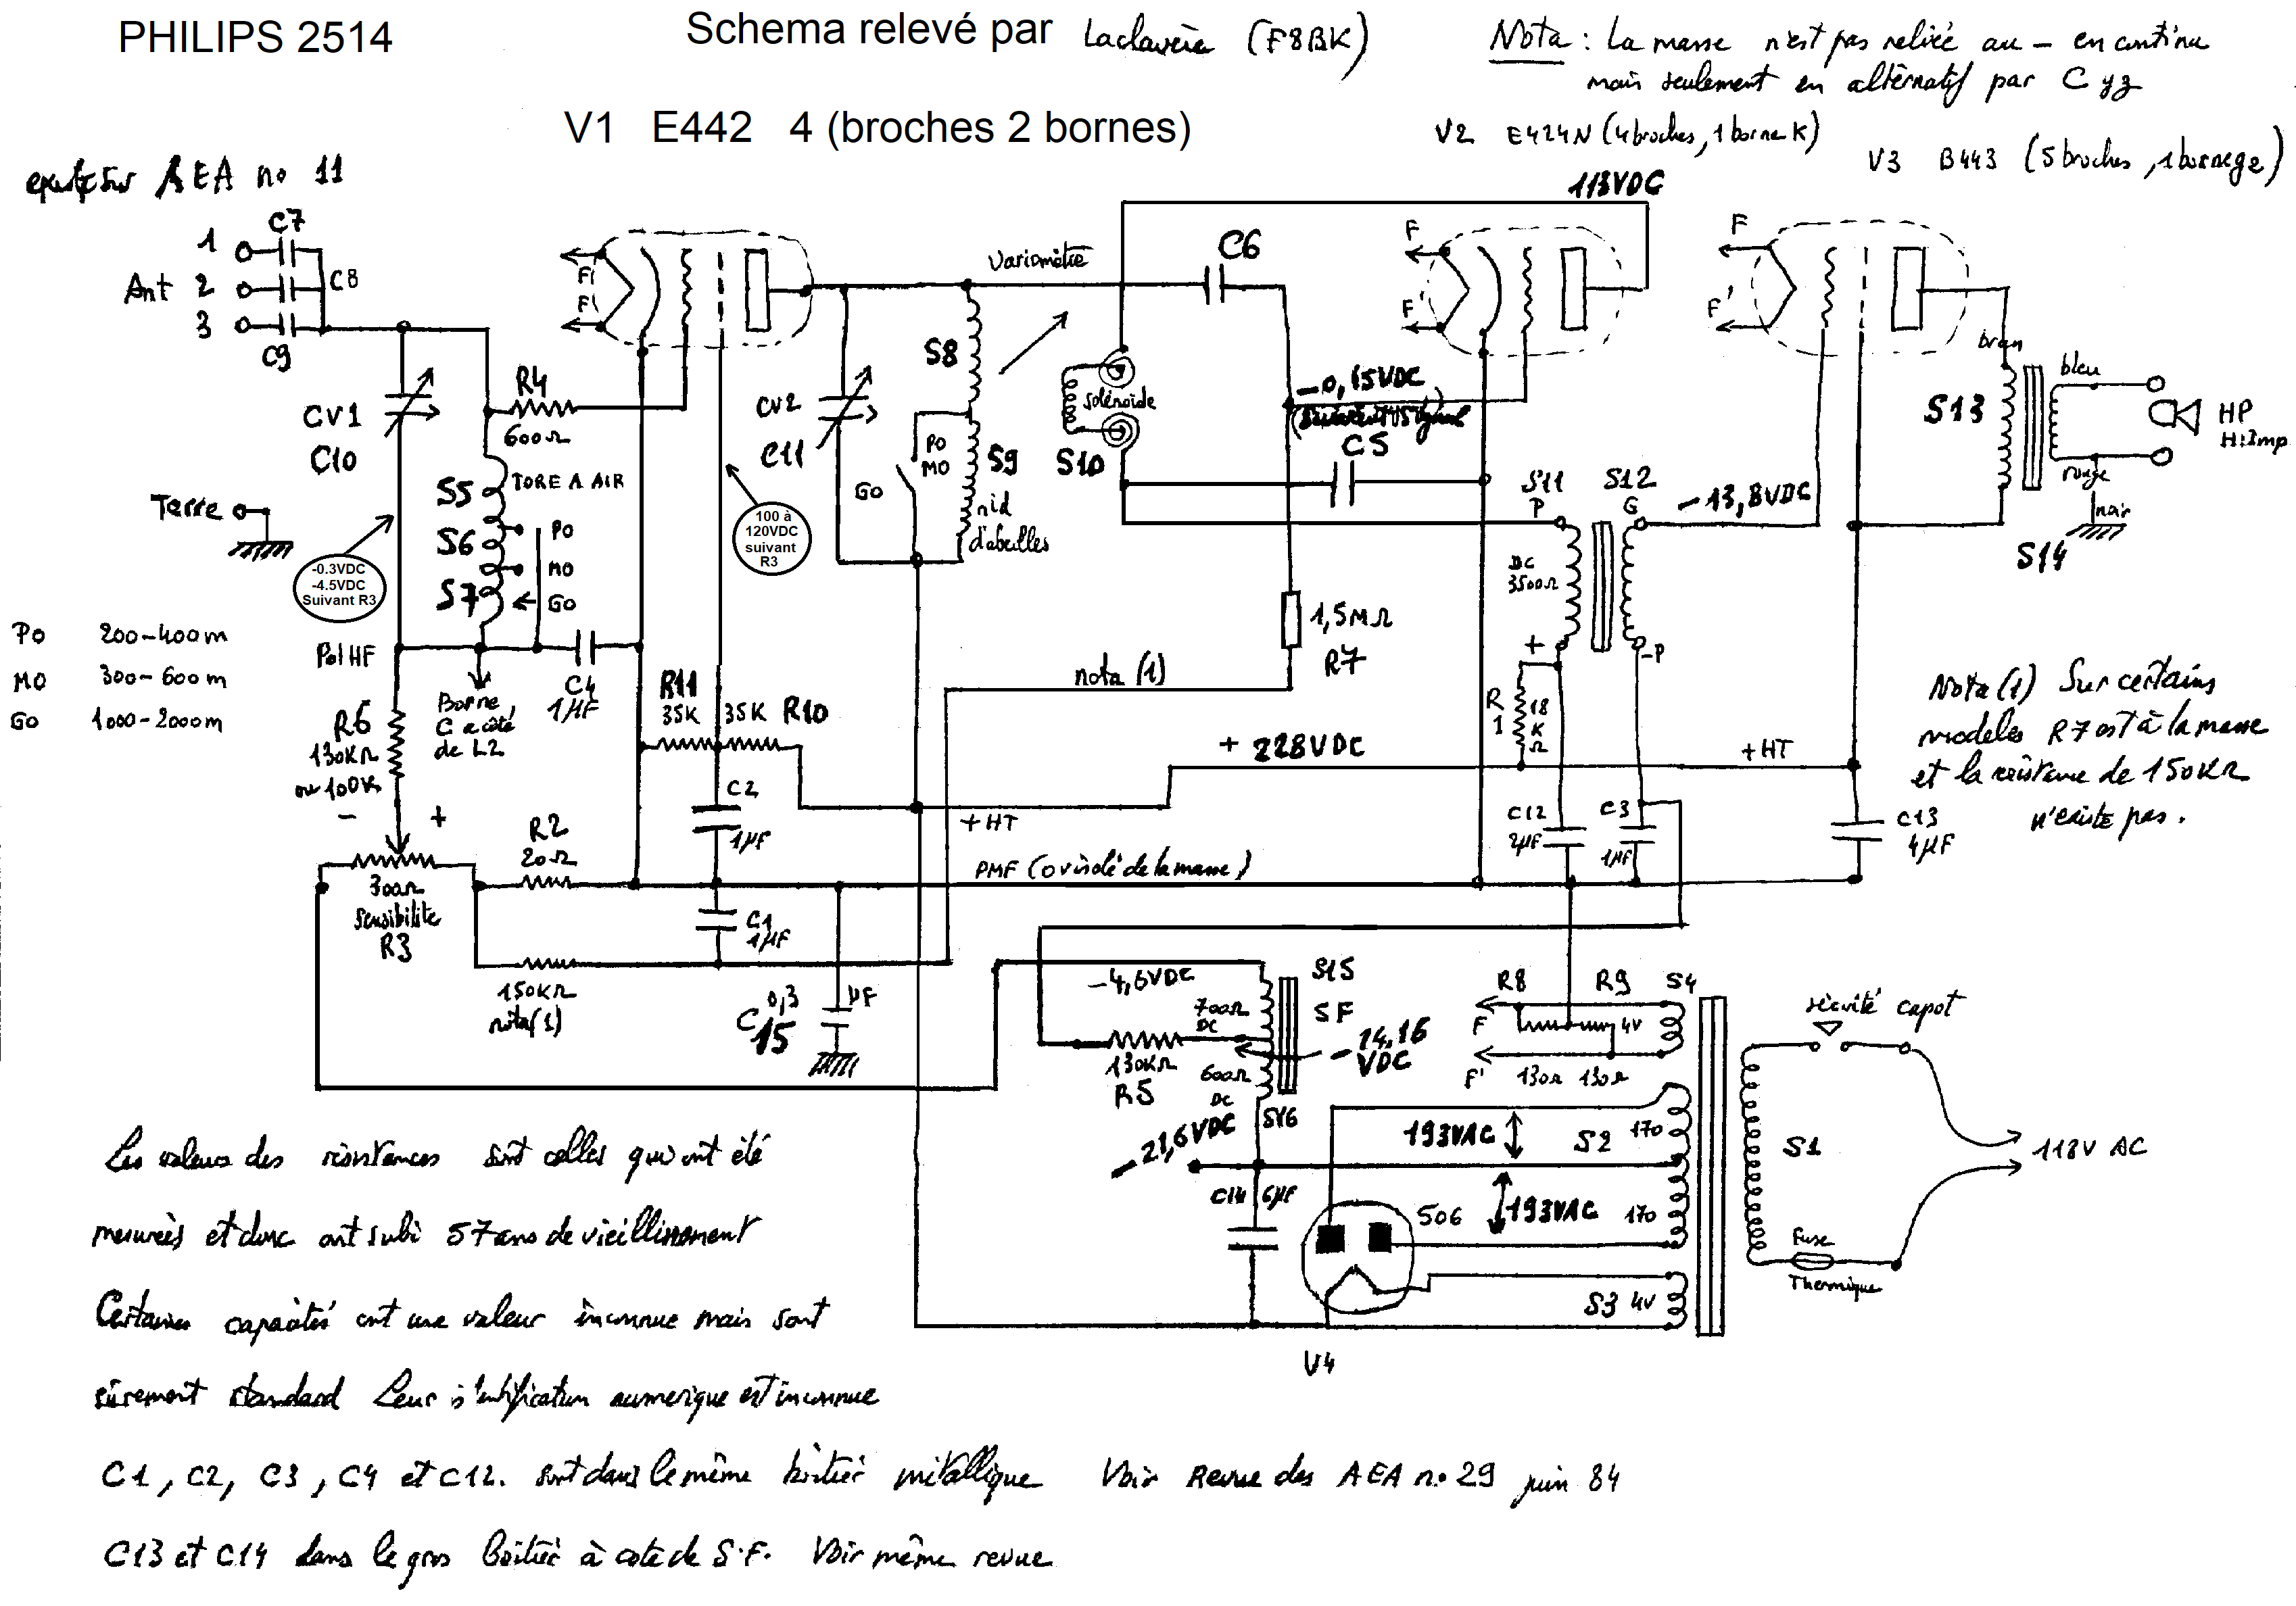 PHILIPS 2514
Schema relevé par Laclavère (F8BK)
Nota : La masse n'est pas reliée au – en continu
mais seulement en alternatif par C
V1 E442 4 (broches 2 bornes)
V2 E424N (4 broches, 1 borne K)
V3 B443 (5 broches, 1 borne g2)
AEA no 11
113VDC
C7
1
Ant 2
C8
3
C9
F
F
Variomètre
C6
F
F'
F
F'
brun
bleu
S8
R4
600Ω
CV1
C10
CV2
C11
solénoïde
-0,15VDC
S13
HP
H:Imp
rouge
noir
S14
S5
TORE A AIR
S6
PO
MO
S7
GO
PO
MO
S9
GO
nid
d'abeilles
S10
C5
S11
P
S12
G
-13,8VDC
Terre
100 à
120VDC
suivant
R3
-0.3VDC
-4.5VDC
Suivant R3
DC
3500Ω
1,5MΩ
R7
+
-P
PO 200-400m
MO 300-600m
GO 1000-2000m
Pol HF
C4
1µF
Borne
C a côté
de L2
R6
130KΩ
ou 100K
R11
35K
35K R10
nota (1)
R
1
18
K
Ω
Nota (1) Sur certains
modeles R7 est à la masse
et la résistance de 150KΩ
n'existe pas.
+ 228VDC
+HT
+HT
C2
1µF
C12
2µF
C3
1µF
C13
4µF
-
+
R2
20Ω
300Ω
Sensibilité
R3
PMF (0 v isolé de la masse)
C1
1µF
150KΩ
nota (1)
C15
0,3 µF
-4,6VDC
S15
SF
700Ω
DC
-14,16
VDC
130KΩ
R5
600Ω
DC
R8
R9
S4
F
4V
F'
130Ω 130Ω
sécurité capot
-21,6VDC
193VAC
S2
170
S1
118V AC
C14 6µF
506
193VAC
170
Fuse
Thermique
S3 4V
V4
Les valeurs des résistances sont celles qui ont été
mesurées et donc ont subi 57 ans de vieillissement
Certaines capacités ont une valeur inconnue mais sont
sûrement standard Leur identification numerique est inconnue
C1, C2, C3, C4 et C12. sont dans le même boitier métallique Voir Revue des AEA no 29 juin 84
C13 et C14 dans le gros boitier à coté de S.F. Voir même revue